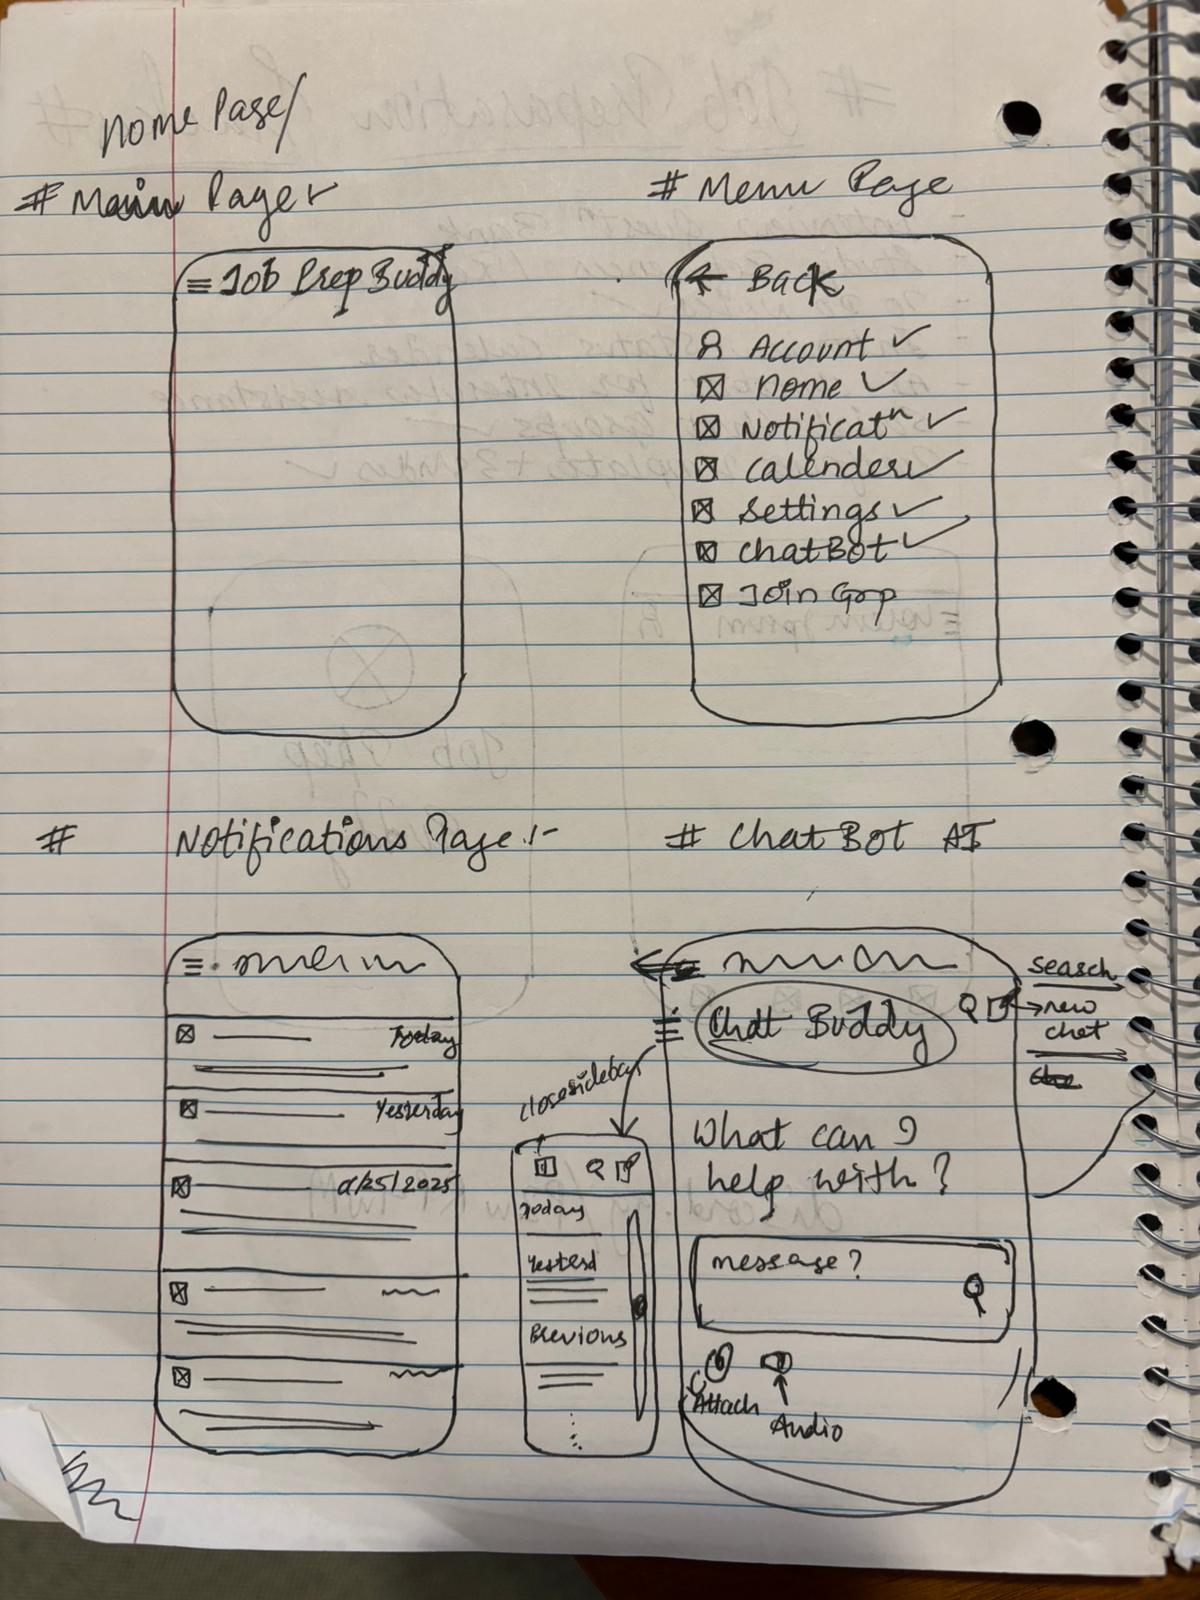 Home Page/
# Main Page :-
≡ Job Prep Buddy
# Menu Page
← Back
Account ✓
Home ✓
Notificatⁿ ✓
Calender ✓
Settings ✓
ChatBot ✓
Join Grp
# Notifications Page :-
Today
Yesterday
/25/2025
# ChatBot AI
Chat Buddy
search
→ new
chat
close sidebar
Today
Yesterd
Previous
What can I
help with?
message?
Attach
Audio